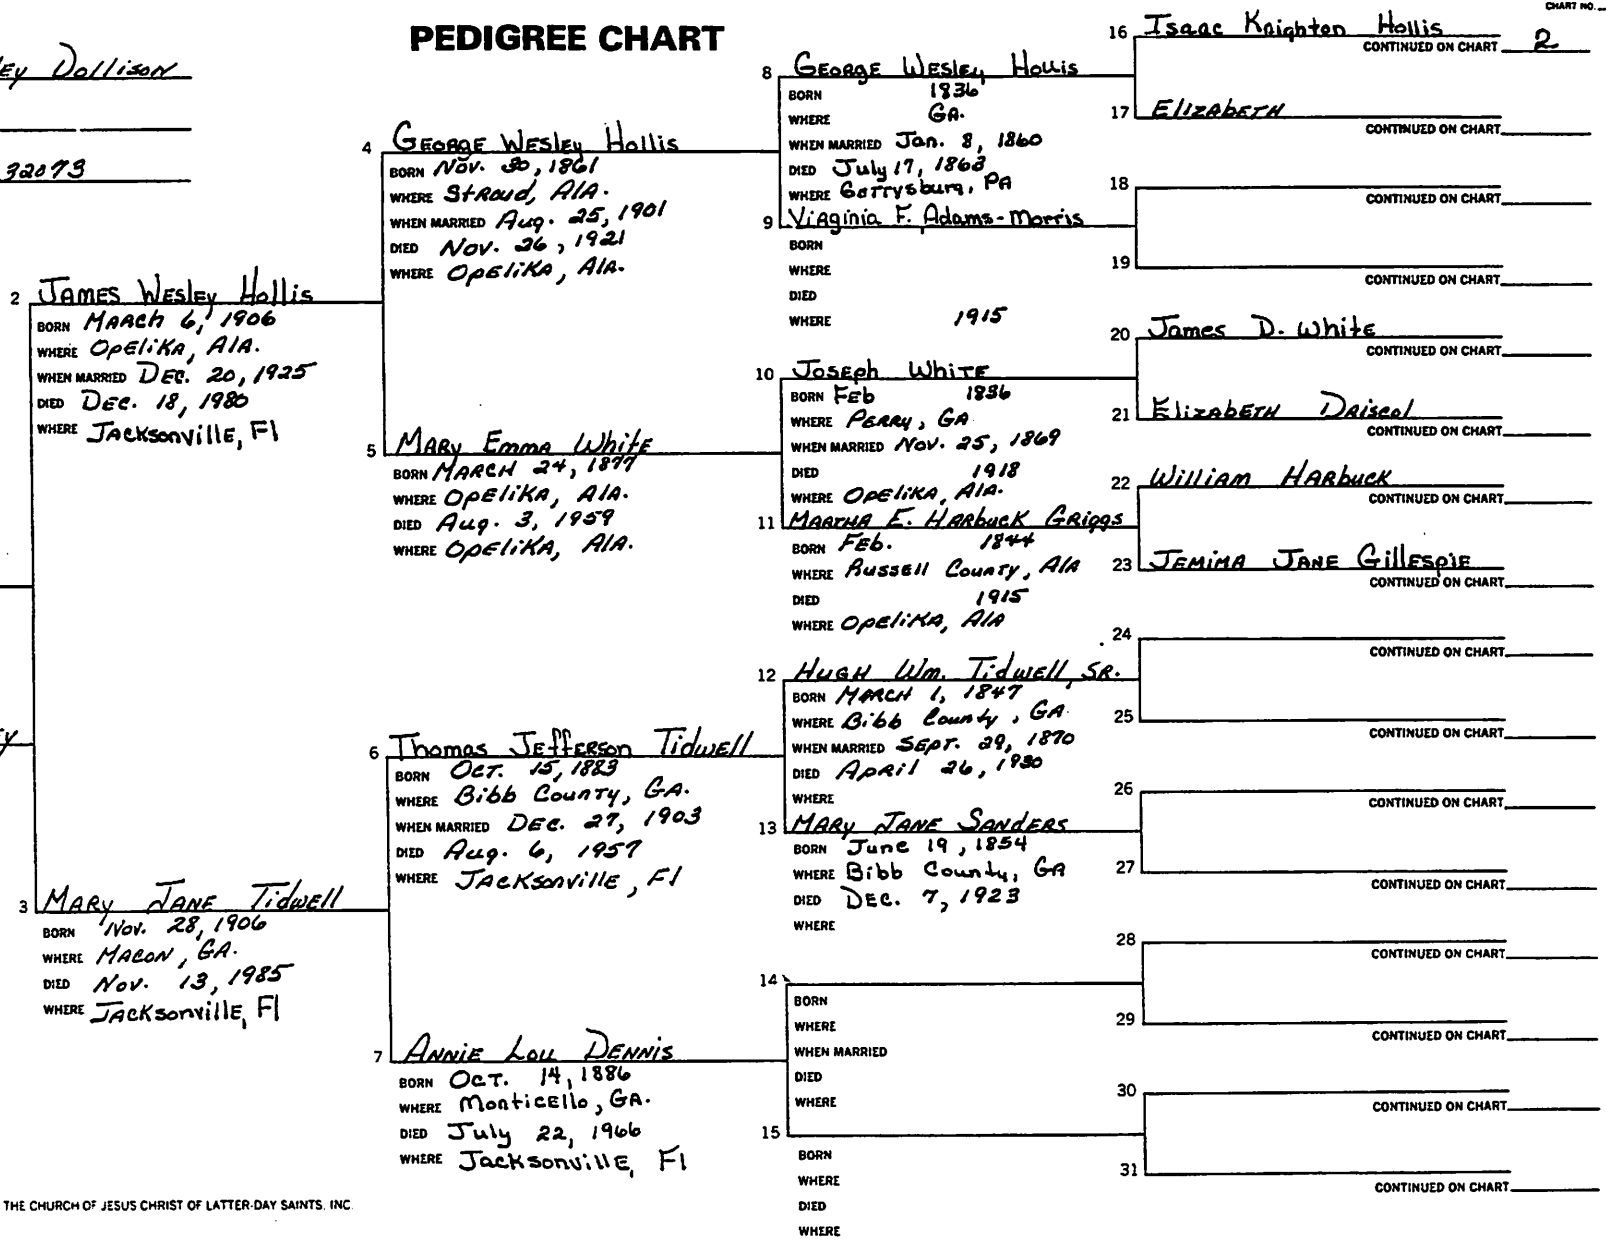 PEDIGREE CHART
CHART NO.
EY Dollison
32073
2 JAMES Wesley Hollis
BORN MARCH 6, 1906
WHERE OPELIKA, ALA.
WHEN MARRIED DEC. 20, 1925
DIED DEC. 18, 1980
WHERE JACKSONVILLE, Fl
3 MARY JANE Tidwell
BORN Nov. 28, 1906
WHERE MACON, GA.
DIED Nov. 13, 1985
WHERE JACKSONVILLE, Fl
4 GEORGE WESLEY Hollis
BORN Nov. 30, 1861
WHERE Stroud, Ala.
WHEN MARRIED Aug. 25, 1901
DIED Nov. 26, 1921
WHERE OPELIKA, Ala.
5 MARY Emma White
BORN MARCH 24, 1877
WHERE OPELIKA, Ala.
DIED Aug. 3, 1959
WHERE OPELIKA, Ala.
6 Thomas JEFFERSON Tidwell
BORN Oct. 15, 1883
WHERE Bibb County, GA.
WHEN MARRIED DEC. 27, 1903
DIED Aug. 6, 1957
WHERE JACKSONVILLE, Fl
7 ANNIE Lou DENNIS
BORN Oct. 14, 1886
WHERE Monticello, GA.
DIED July 22, 1966
WHERE Jacksonville, Fl
8 GEORGE WESLEY Hollis
BORN 1836
WHERE GA.
WHEN MARRIED Jan. 8, 1860
DIED July 17, 1863
WHERE Gettysburg, PA
9 Virginia F. Adams-Morris
BORN
WHERE
DIED
WHERE 1915
10 Joseph White
BORN Feb 1836
WHERE PERRY, GA
WHEN MARRIED Nov. 25, 1869
DIED 1918
WHERE OPELIKA, Ala.
11 MARTHA E. HARBUCK GRIGGS
BORN FEB. 1844
WHERE RUSSELL County, Ala
DIED 1915
WHERE OPELIKA, Ala
12 HUGH Wm. Tidwell, SR.
BORN MARCH 1, 1847
WHERE Bibb County, GA
WHEN MARRIED SEPT. 29, 1870
DIED APRIL 26, 1930
WHERE
13 MARY JANE SANDERS
BORN June 19, 1854
WHERE Bibb County, GA
DIED DEC. 7, 1923
WHERE
14
BORN
WHERE
WHEN MARRIED
DIED
WHERE
15
BORN
WHERE
DIED
WHERE
16 Isaac Knighton Hollis
CONTINUED ON CHART 2
17 ELIZABETH
CONTINUED ON CHART
18
CONTINUED ON CHART
19
CONTINUED ON CHART
20 James D. White
CONTINUED ON CHART
21 ELIZABETH Driscol
CONTINUED ON CHART
22 William HARBUCK
CONTINUED ON CHART
23 JEMIMA JANE Gillespie
CONTINUED ON CHART
24
CONTINUED ON CHART
25
CONTINUED ON CHART
26
CONTINUED ON CHART
27
CONTINUED ON CHART
28
CONTINUED ON CHART
29
CONTINUED ON CHART
30
CONTINUED ON CHART
31
CONTINUED ON CHART
THE CHURCH OF JESUS CHRIST OF LATTER-DAY SAINTS, INC.